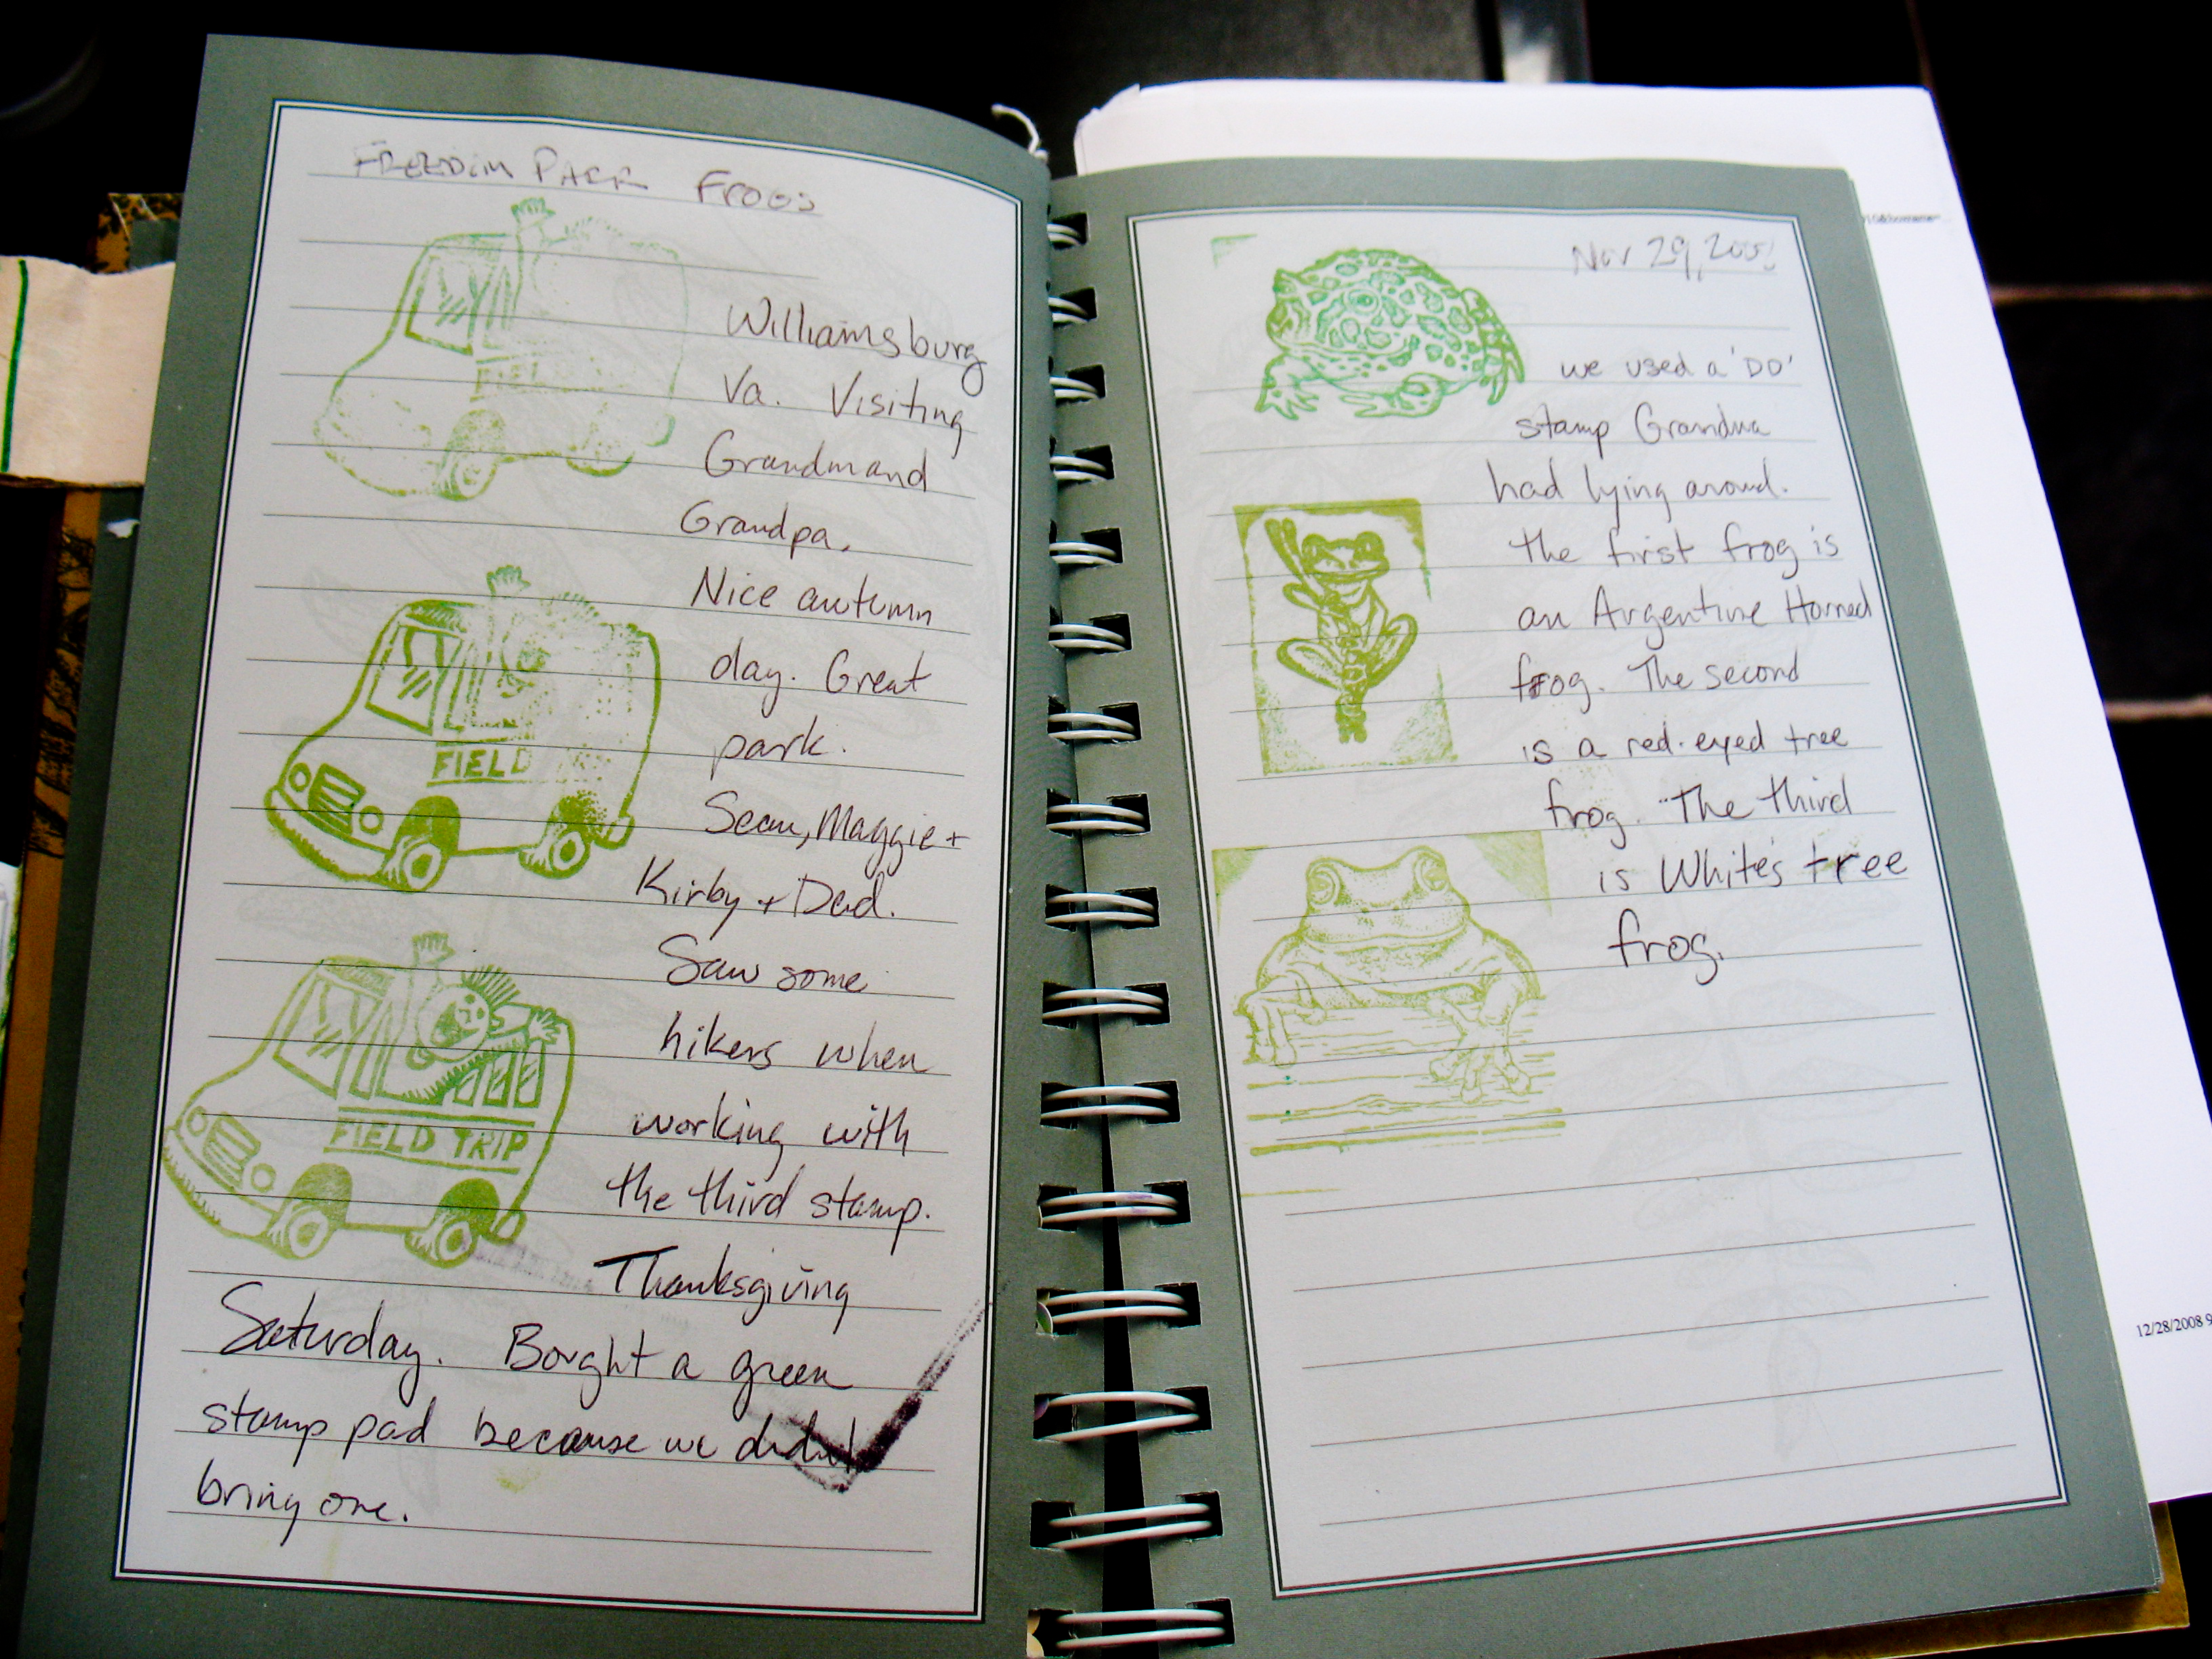 FREEDOM PARK FROGS
Williamsburg
Va. Visiting
Grandmand
Grandpa.
Nice autumn
day. Great
park.
Sean, Maggie +
Kirby + Dad.
Saw some
hikers when
working with
the third stamp.
Thanksgiving
Saturday. Bought a green
stamp pad because we didn't
bring one.
FIEL
FIELD
FIELD TRIP
Nov 29,
we used a 'DD'
stamp Grandma
had lying around.
The first frog is
an Argentine Horned
frog. The second
is a red-eyed tree
frog. The third
is White's tree
frog.
12/28/2008 9